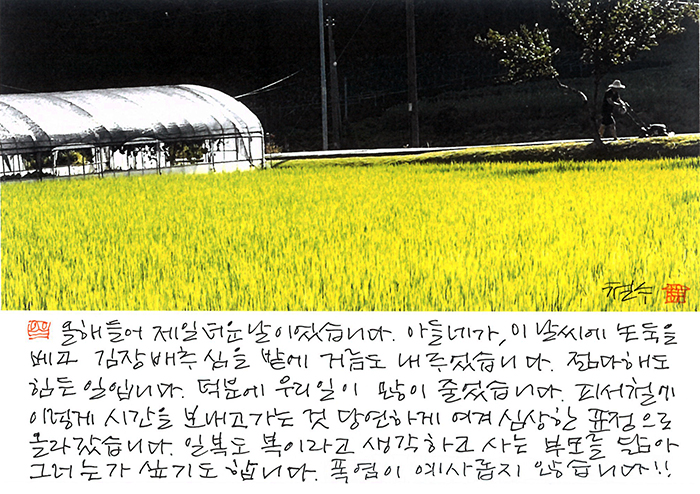 철수
올해들어 제일 더운날이었습니다. 아들네가, 이 날씨에 논둑을
베고 김장배추 심을 밭에 거름도 내주었습니다.
힘든일입니다. 덕분에 우리일이 많이 줄었습니다. 피서철에
이렇게 시간을 보내고가는 것 당연하게 여겨 심상한 표정으로
올라갔습니다. 일복도 복이라고 생각하고 사는 부모를 닮아
그러는가 싶기도 합니다. 폭염이 예사롭지 않습니다!!